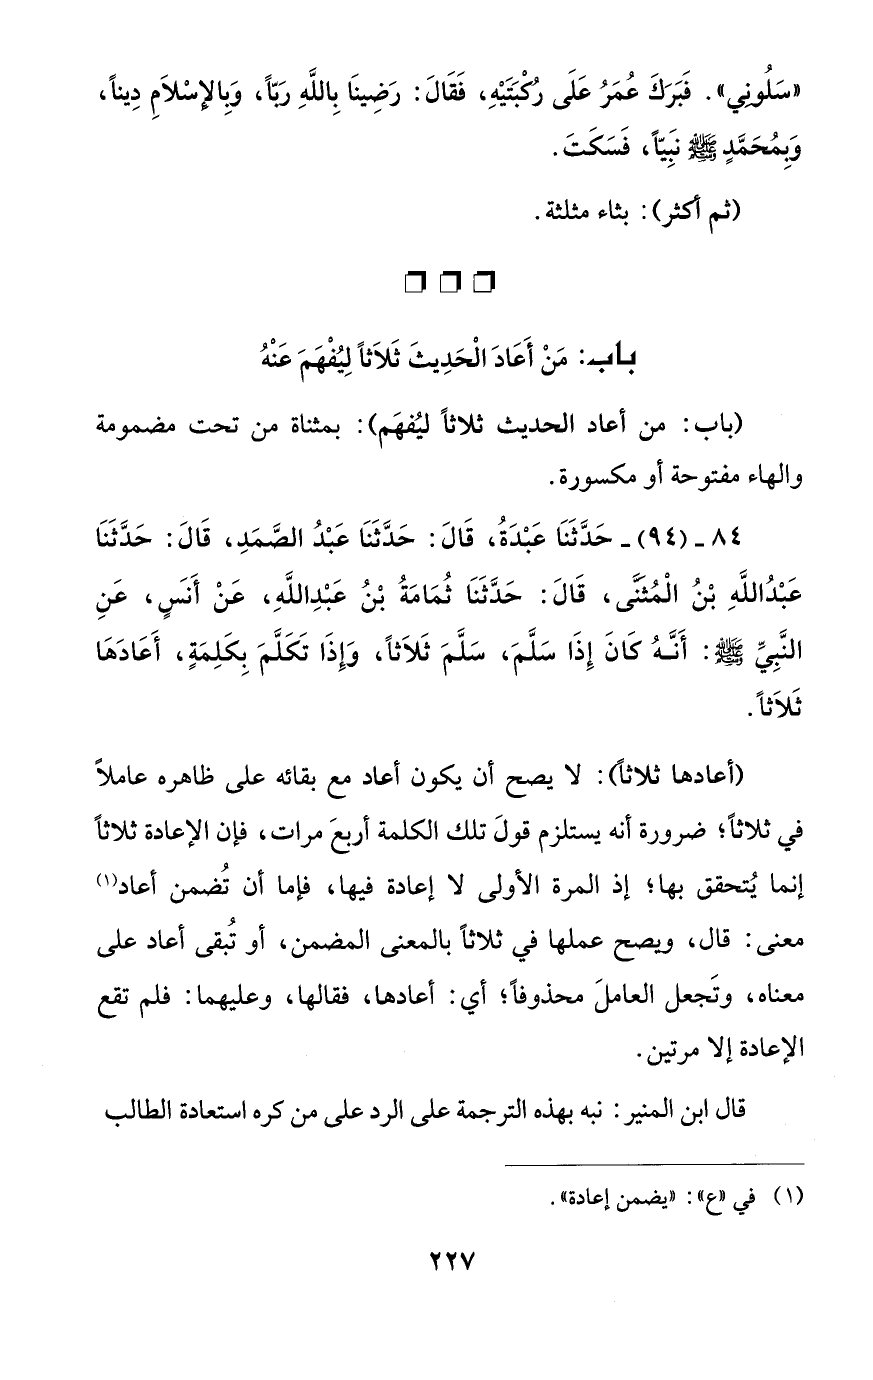 «سَلُونِي». فَبَرَكَ عُمَرُ عَلَى رُكْبَتَيْهِ، فَقَالَ: رَضِينَا بِاللَّهِ رَبّاً، وَبِالإِسْلاَمِ دِيناً،
وَبِمُحَمَّدٍ ﷺ نَبِيّاً، فَسَكَتَ.
(ثم أكثر): بثاء مثلثة.
باب: مَنْ أَعَادَ الْحَدِيثَ ثَلاَثاً لِيُفْهَمَ عَنْهُ
(باب: من أعاد الحديث ثلاثاً ليُفهَم): بمثناة من تحت مضمومة
والهاء مفتوحة أو مكسورة.
٨٤ ـ (٩٤) ـ حَدَّثَنَا عَبْدَةُ، قَالَ: حَدَّثَنَا عَبْدُ الصَّمَدِ، قَالَ: حَدَّثَنَا
عَبْدُاللَّهِ بْنُ الْمُثَنَّى، قَالَ: حَدَّثَنَا ثُمَامَةُ بْنُ عَبْدِاللَّهِ، عَنْ أَنَسٍ، عَنِ
النَّبِيِّ ﷺ: أَنَّهُ كَانَ إِذَا سَلَّمَ، سَلَّمَ ثَلاَثاً، وَإِذَا تَكَلَّمَ بِكَلِمَةٍ، أَعَادَهَا
ثَلاَثاً.
(أعادها ثلاثاً): لا يصح أن يكون أعاد مع بقائه على ظاهره عاملاً
في ثلاثاً؛ ضرورة أنه يستلزم قولَ تلك الكلمة أربعَ مرات، فإن الإعادة ثلاثاً
إنما يُتحقق بها؛ إذ المرة الأولى لا إعادة فيها، فإما أن تُضمن أعاد(١)
معنى: قال، ويصح عملها في ثلاثاً بالمعنى المضمن، أو تُبقى أعاد على
معناه، وتَجعل العاملَ محذوفاً؛ أي: أعادها، فقالها، وعليهما: فلم تقع
الإعادة إلا مرتين.
قال ابن المنير: نبه بهذه الترجمة على الرد على من كره استعادة الطالب
(١) في «ع»: «يضمن إعادة».
٢٢٧